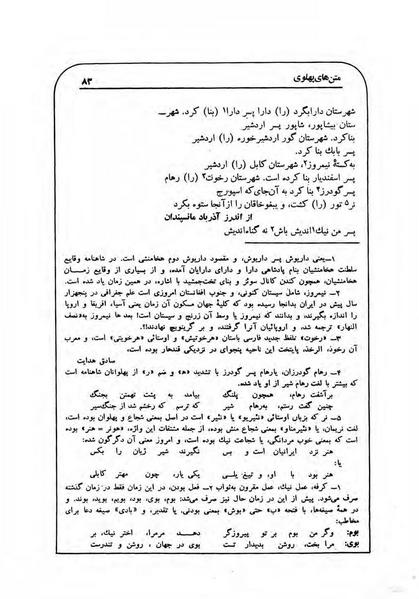 متن‌های پهلوی
۸۳
شهرستان دارابگرد (را) دارا پسر دارا۱ (بنا) کرد. شهر—
ستان بیشاپور، شاپور پسر اردشیر
بناکرد. شهرستان گور اردشیرخوره (را) اردشیر
پسر بابک بنا کرد.
به‌کستهٔ نیمروز۲، شهرستان کابل (را) اردشیر
پسر اسفندیار بنا کرده است. شهرستان رخوت۳ (را) رهام
پسر گودرز۴ بنا کرد به آن‌جای‌که اسپورج
نر۵ تور (را) کشت، و یبغوخاقان را ازآنجا ستوه بکرد
از اندرز آذرباد مانسپندان
پسر من نیک۱ اندیش باش۲ نه گناه‌اندیش
۱—یعنی داریوش پسر داریوش، و مقصود داریوش دوم هخامنشی است. در شاهنامه وقایع
سلطنت هخامنشیان بنام پادشاهی دارا و دارای دارایان آمده، و از بسیاری از وقایع زمــان
هخامنشیان، همچون کندن کانال سوئز و بنای تخت‌جمشید با اشاره، در همین زمان یاد شده است.
۲— نیمروز، شامل سیستان کنونی، و جنوب افغانستان امروزی است علم جغرافی در پنجهزار
سال پیش در ایران بدانجا رسیده بود که کلیهٔ جهان مسکون آن زمان یعنی آسیا، افریقا و اروپا
را اندازه بگیرند، و بدانند که نیمروز یا وسط آن زرنج و سیستان است! بعد ها نیمروز به«نصف
النهار» ترجمه شد، و اروپائیان آنرا گرفتند، و بر گرینویچ نهادند!؟.
۳— «رخوت» تلفظ جدید فارسی باستان «هرخوتیش» و اوستائی «هرخویتی» است، و معرب
آن رخوذ، الرخذ، پایتخت این ناحیه پنجوای در نزدیکی قندهار بوده است،
صادق هدایت
۴— رهام گودرزان، یارهام پسر گودرز با تشدید «ه» و ضم «ر» از پهلوانان شاهنامه است
که بیشتر با لغت رهام شیر از او یاد شد.
برآشفت رهام، همچون پلنگ بیامد به پشت تهمتن بجنگ
چنین گفت رستم، به‌رهام شیر که ترسم که رخشم شد از جنگ‌سیر
۵— نر که بزبان اوستائی «نئیریو» یا «نئیر» است، بمعنی شجاع و پهلوان بوده است،
لغت نریمان، یا «نئیرمناو» بمعنی شجاع منش بوده، از جمله مشتقات این واژه، «هونر = هنر» بوده
است که بمعنی خوب مردانگی، یا شجاعت نیک بوده است، و امروز معنی آن دگرگون شده:
هنر نزد ایرانیان است و بس نگیرند شیر ژیان را بکس
یا:
هنر بود با او، و تیغ یلسی یکی یار، چون مهتر کابلی
۱— کرفه، عمل نیک، عمل مقرون به‌ثواب ۲— فعل بودن، در این زمان فقط در زمان گذشته
صرف می‌شود، پیش از این در زمان حال نیز صرف می‌شد: بوم، بوی، بود، بویم، بوید، بوند. و
در همهٔ صیغه‌ها، با فتحه «ب» حتی «بوش» بمعنی بودنی، یا تقدیر، و «بادی» صیغه دعا برای
مخاطب:
بوم: وگر من بوم بر تو پیروزگر دهــد مرمرا، اختر نیک، بر
بوی: مرا بخت، روشن بدیدار تست بوی در جهان، روشن و تندرست